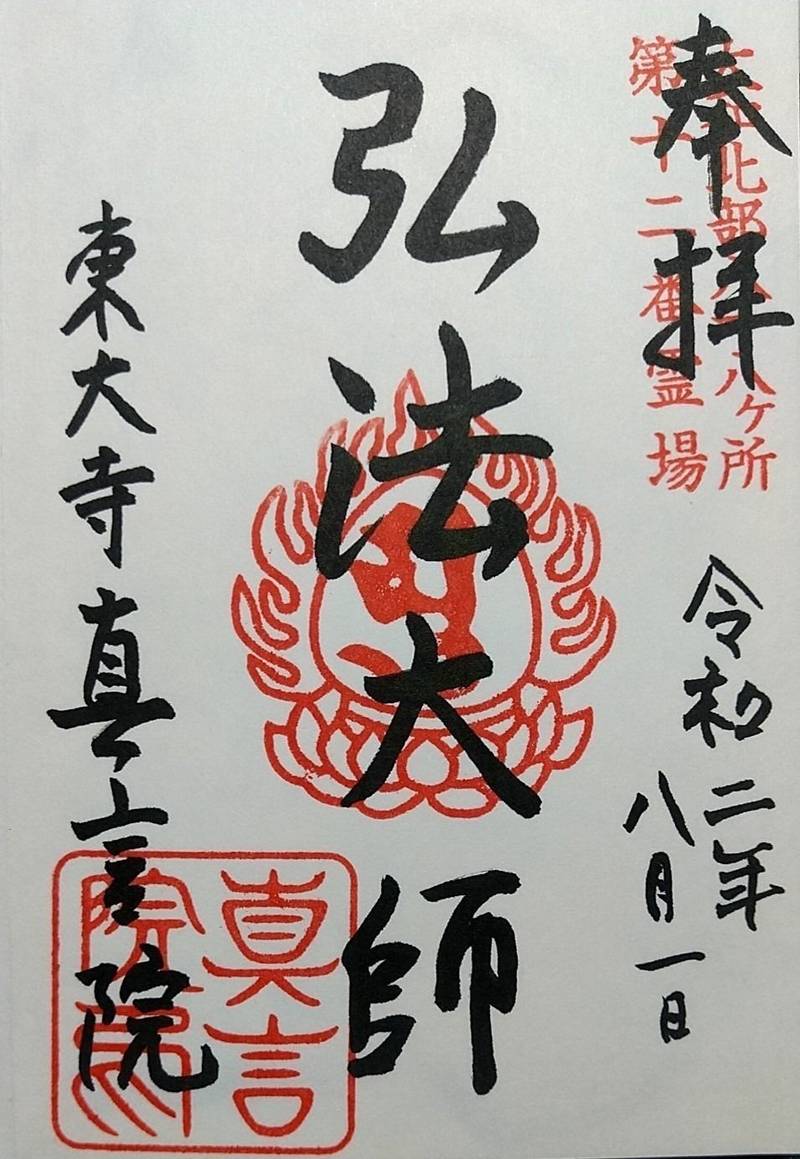 奉拝
大和北部八十八ヶ所
第十二番霊場
令和二年
八月一日
弘法大師
東大寺真言院
真言
院印